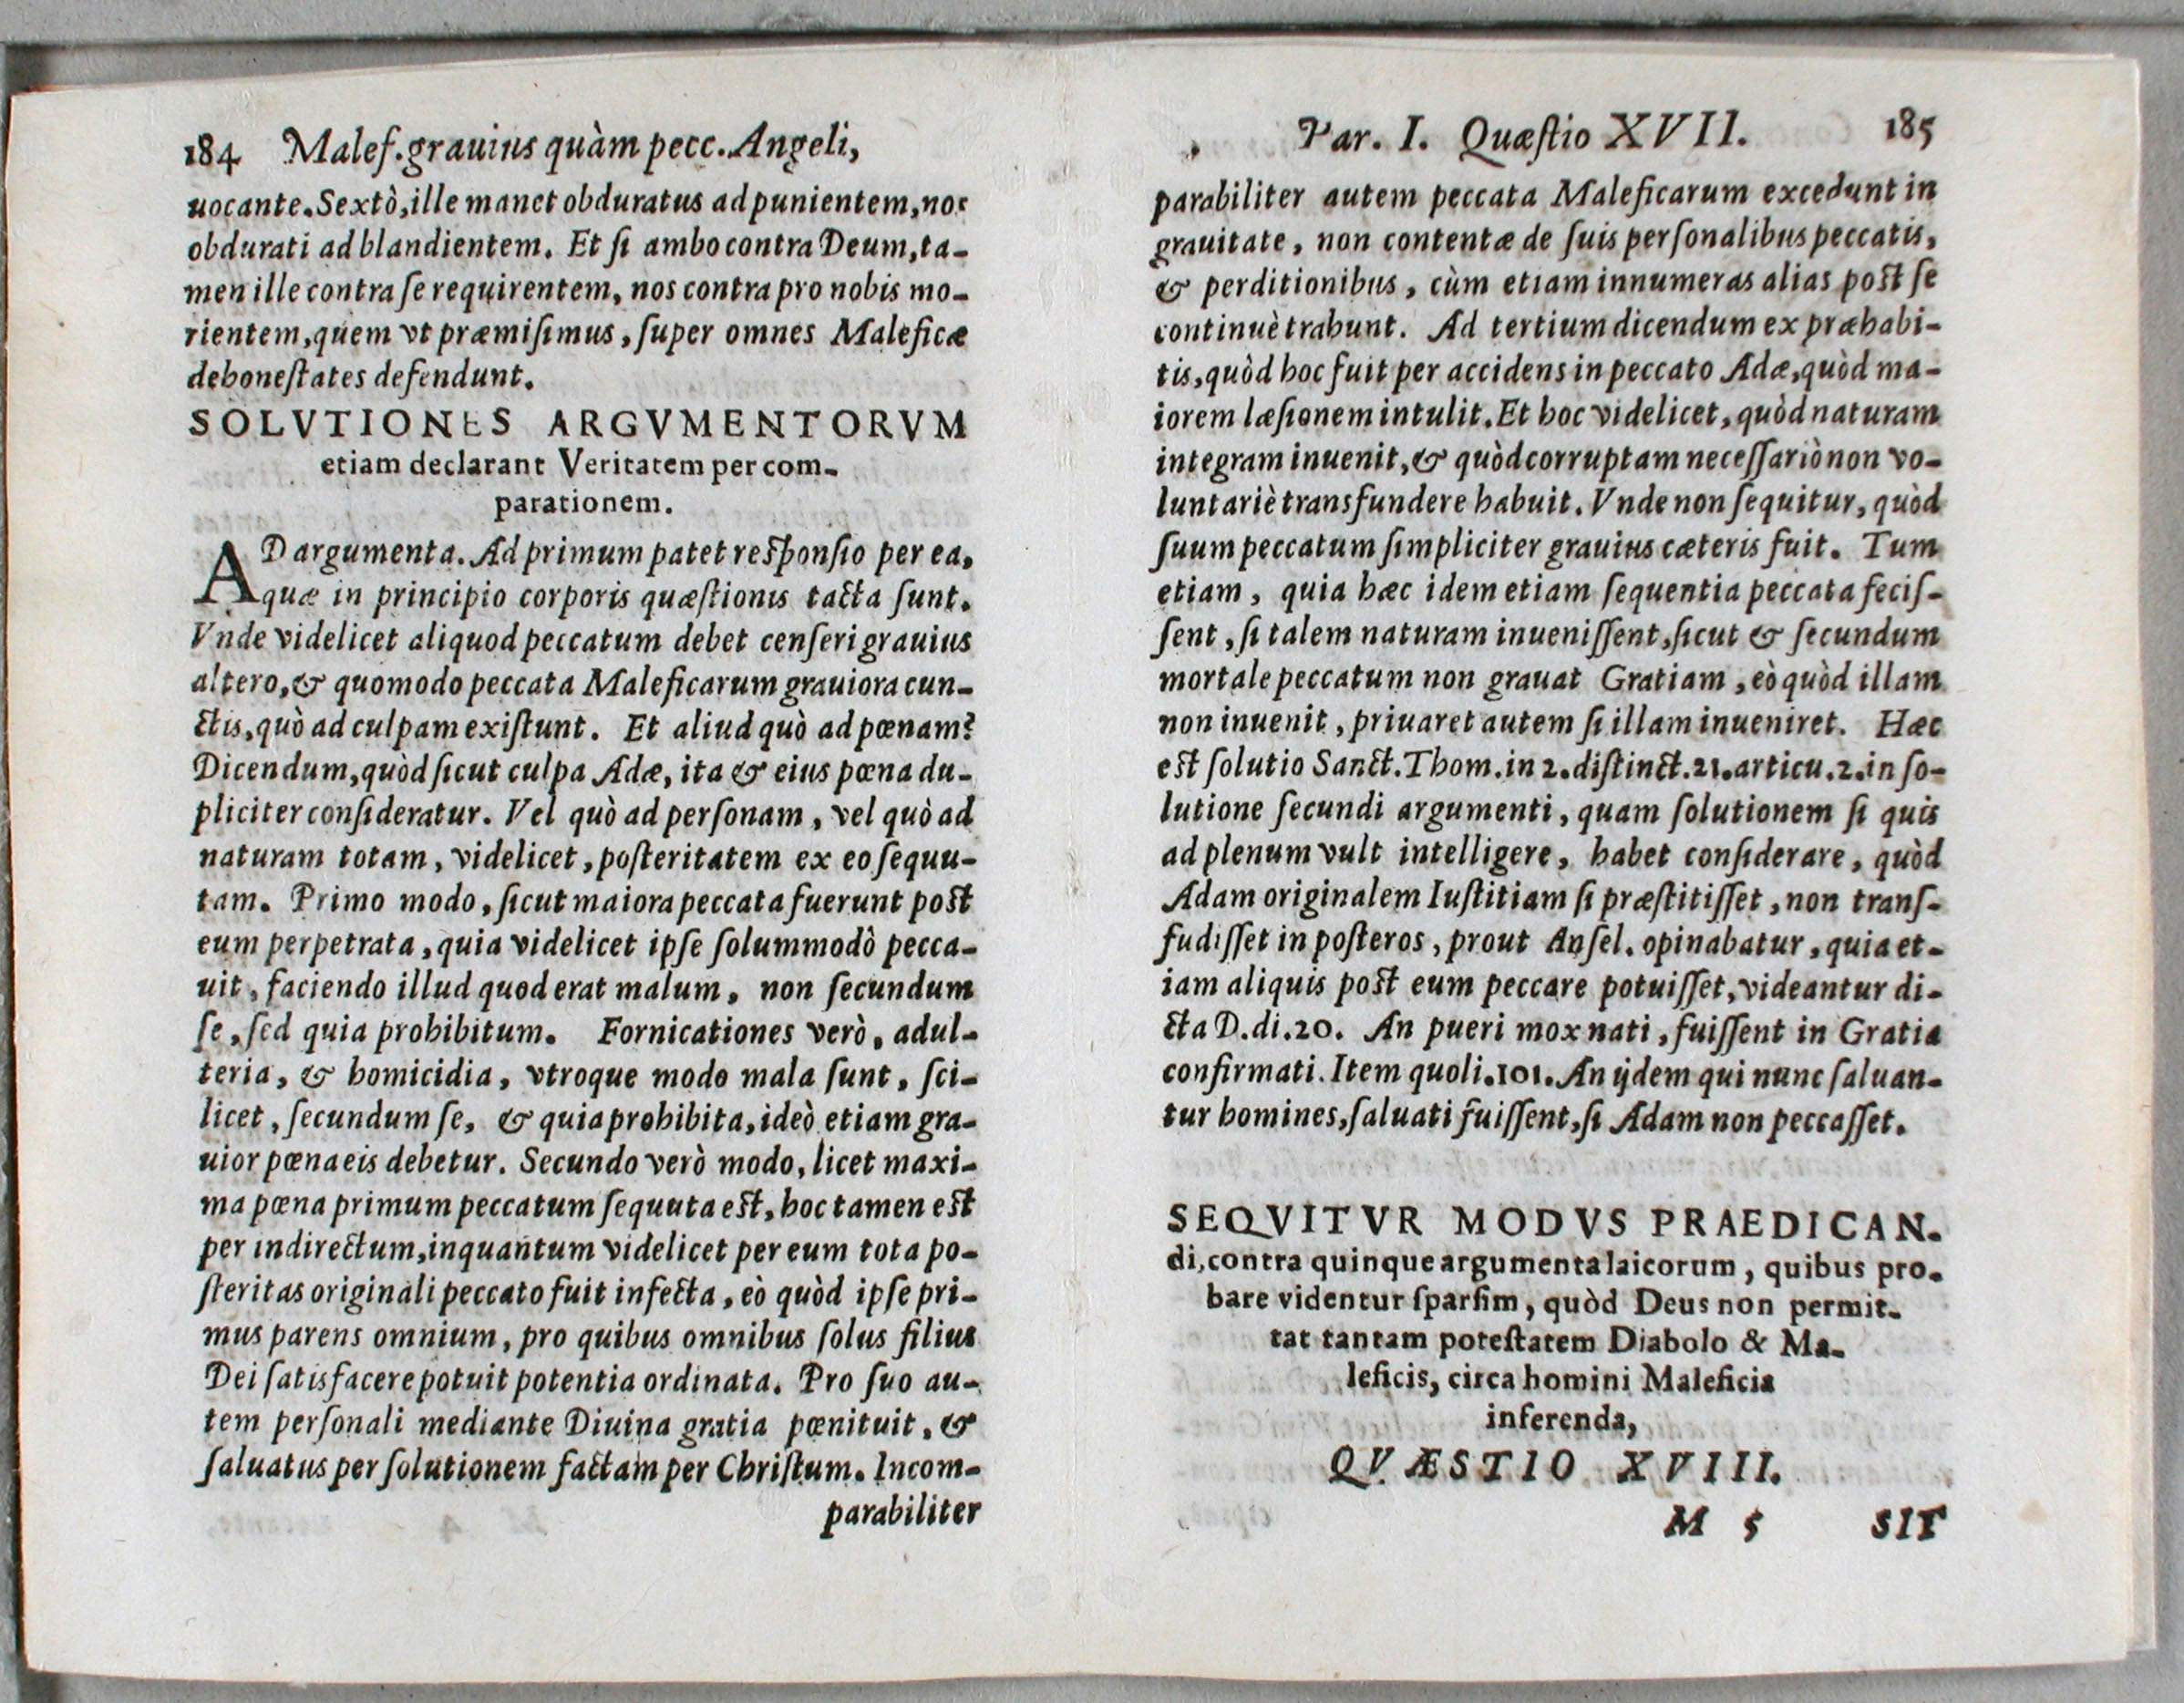 184 Malef. grauius quàm pecc. Angeli,
uocante. Sextò, ille manet obduratus ad punientem, nos
obdurati ad blandientem. Et ſi ambo contra Deum, ta-
men ille contra ſe requirentem, nos contra pro nobis mo-
rientem, quem vt præmiſimus, ſuper omnes Maleficæ
dehoneſtates defendunt.
SOLVTIONES ARGVMENTORVM
etiam declarant Veritatem per com-
parationem.
AD argumenta. Ad primum patet reſponſio per ea,
quæ in principio corporis quæſtionis tacta ſunt.
Vnde videlicet aliquod peccatum debet cenſeri grauius
altero, & quomodo peccata Maleficarum grauiora cun-
ctis, quò ad culpam exiſtunt. Et aliud quò ad pœnam?
Dicendum, quòd ſicut culpa Adæ, ita & eius pœna du-
pliciter conſideratur. Vel quò ad perſonam, vel quò ad
naturam totam, videlicet, poſteritatem ex eo ſequu-
tam. Primo modo, ſicut maiora peccata fuerunt poſt
eum perpetrata, quia videlicet ipſe ſolummodò pecca-
uit, faciendo illud quod erat malum, non ſecundum
ſe, ſed quia prohibitum. Fornicationes verò, adul-
teria, & homicidia, vtroque modo mala ſunt, ſci-
licet, ſecundum ſe, & quia prohibita, ideò etiam gra-
uior pœna eis debetur. Secundo verò modo, licet maxi-
ma pœna primum peccatum ſequuta eſt, hoc tamen eſt
per indirectum, inquantum videlicet per eum tota po-
ſteritas originali peccato fuit infecta, eò quòd ipſe pri-
mus parens omnium, pro quibus omnibus ſolus filius
Dei ſatisfacere potuit potentia ordinata. Pro ſuo au-
tem perſonali mediante Diuina gratia pœnituit, &
ſaluatus per ſolutionem factam per Chriſtum. Incom-
parabiliter
Par. I. Quæſtio XVII. 185
parabiliter autem peccata Maleficarum excedunt in
grauitate, non contentæ de ſuis perſonalibus peccatis,
& perditionibus, cùm etiam innumeras alias poſt ſe
continuè trahunt. Ad tertium dicendum ex præhabi-
tis, quòd hoc fuit per accidens in peccato Adæ, quòd ma-
iorem læſionem intulit. Et hoc videlicet, quòd naturam
integram inuenit, & quòd corruptam neceſſariò non vo-
luntariè transfundere habuit. Vnde non ſequitur, quòd
ſuum peccatum ſimpliciter grauius cæteris fuit. Tum
etiam, quia hæc idem etiam ſequentia peccata feciſ-
ſent, ſi talem naturam inueniſſent, ſicut & ſecundum
mortale peccatum non grauat Gratiam, eò quòd illam
non inuenit, priuaret autem ſi illam inueniret. Hæc
eſt ſolutio Sanct. Thom. in 2. diſtinct. 21. articu. 2. in ſo-
lutione ſecundi argumenti, quam ſolutionem ſi quis
ad plenum vult intelligere, habet conſiderare, quòd
Adam originalem Iuſtitiam ſi præſtitiſſet, non tranſ-
fudiſſet in poſteros, prout Anſel. opinabatur, quia et-
iam aliquis poſt eum peccare potuiſſet, videantur di-
cta D. di. 20. An pueri mox nati, fuiſſent in Gratia
confirmati. Item quoli. 101. An ijdem qui nunc ſaluan-
tur homines, ſaluati fuiſſent, ſi Adam non peccaſſet.
SEQVITVR MODVS PRAEDICAN-
di, contra quinque argumenta laicorum, quibus pro-
bare videntur ſparſim, quòd Deus non permit-
tat tantam poteſtatem Diabolo & Ma-
leficis, circa homini Maleficia
inferenda,
QVÆSTIO XVIII.
M 5 SIT